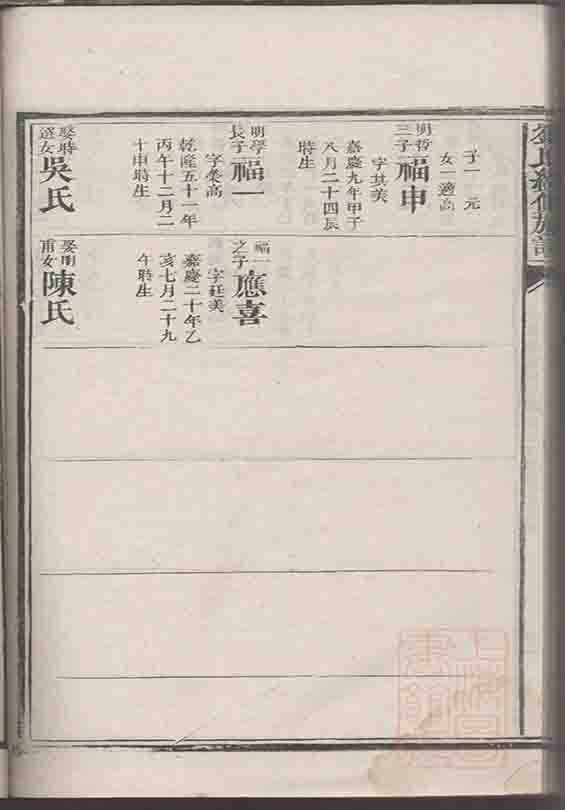 子一 元
女一適高
明哲
三子
福申
字其美
嘉慶九年甲子
八月二十四辰
時生
明學
長子
福一
字榮高
乾隆五十一年
丙午十二月二
十申時生
娶時
選女
吳氏
福一
之子
應喜
字廷美
嘉慶二十年乙
亥七月二十九
午時生
娶明
甫女
陳氏